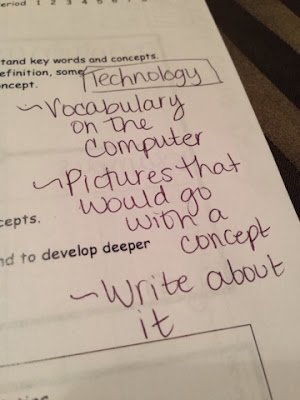 eriod 1 2 3 4 5 6 7
tand key words and concepts.
efinition, some
Technology
ncept.
~Vocabulary
on the
computer
~Pictures that
would go
with a
cepts.
concept
nd to develop deeper
~Write about
it